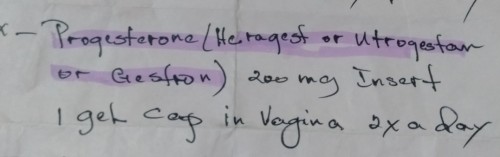 x - Progesterone (Heragest or Utrogestan
or Gestron) 200 mg Insert
1 gel cap in Vagina 2x a day